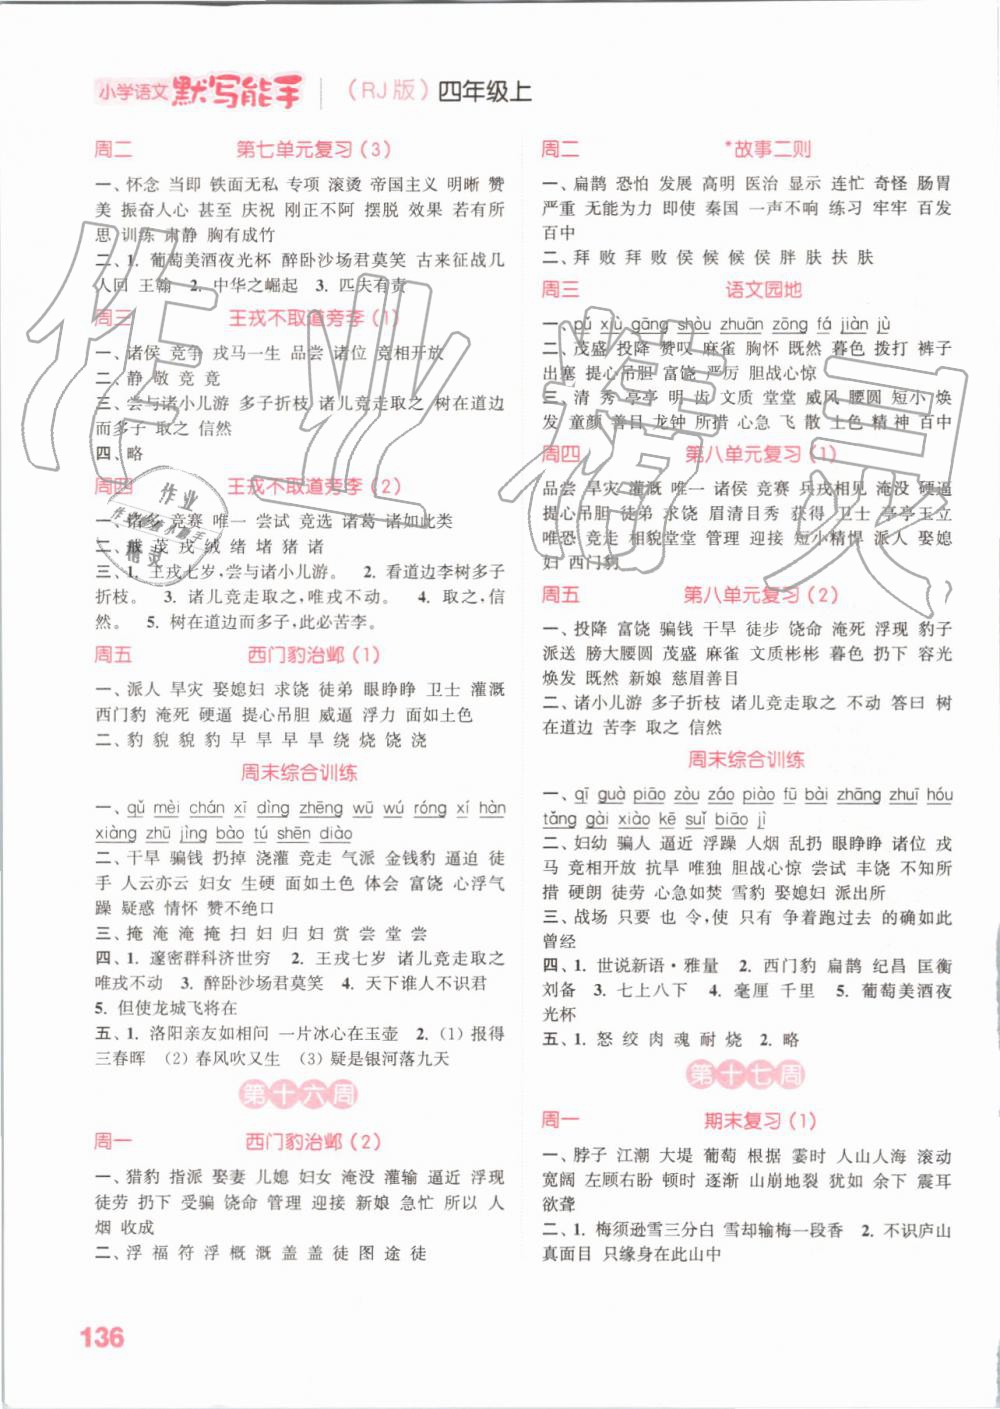 小学语文 默写能手 （RJ版）四年级上
周二 第七单元复习（3）
一、怀念 当即 铁面无私 专项 滚烫 帝国主义 明晰 赞
美 振奋人心 甚至 庆祝 刚正不阿 摆脱 效果 若有所
思 训练 肃静 胸有成竹
二、1. 葡萄美酒夜光杯 醉卧沙场君莫笑 古来征战几
人回 王翰 2. 中华之崛起 3. 匹夫有责
周三 王戎不取道旁李（1）
一、诸侯 竞争 戎马一生 品尝 诸位 竞相开放
二、静 敬 竞 竟
三、尝与诸小儿游 多子折枝 诸儿竞走取之 树在道边
而多子 取之 信然
四、略
周四 王戎不取道旁李（2）
一、诸如 竞赛 唯一 尝试 竞选 诸葛 诸如此类
二、戒 茂 戎 绒 绪 堵 猪 诸
三、1. 王戎七岁，尝与诸小儿游。 2. 看道边李树多子
折枝。 3. 诸儿竞走取之，唯戎不动。 4. 取之，信
然。 5. 树在道边而多子，此必苦李。
周五 西门豹治邺（1）
一、派人 旱灾 娶媳妇 求饶 徒弟 眼睁睁 卫士 灌溉
西门豹 淹死 硬逼 提心吊胆 威逼 浮力 面如土色
二、豹 貌 貌 豹 早 旱 旱 早 绕 烧 饶 浇
周末综合训练
一、qǔ mèi chán xī dìng zhēng wū wú róng xí hàn
xiàng zhū jìng bào tú shēn diào
二、干旱 骗钱 扔掉 浇灌 竞走 气派 金钱豹 逼迫 徒
手 人云亦云 妇女 生硬 面如土色 体会 富饶 心浮气
躁 疑惑 情怀 赞不绝口
三、掩 淹 淹 掩 扫 妇 归 妇 赏 尝 堂 尝
四、1. 邃密群科济世穷 2. 王戎七岁 诸儿竞走取之
唯戎不动 3. 醉卧沙场君莫笑 4. 天下谁人不识君
5. 但使龙城飞将在
五、1. 洛阳亲友如相问 一片冰心在玉壶 2.（1）报得
三春晖 （2）春风吹又生 （3）疑是银河落九天
第十六周
周一 西门豹治邺（2）
一、猎豹 指派 娶妻 儿媳 妇女 淹没 灌输 逼近 浮现
徒劳 扔下 受骗 饶命 管理 迎接 新娘 急忙 所以 人
烟 收成
二、浮 福 符 浮 概 溉 盖 盖 徒 图 途 徒
周二 *故事二则
一、扁鹊 恐怕 发展 高明 医治 显示 连忙 奇怪 肠胃
严重 无能为力 即使 秦国 一声不响 练习 牢牢 百发
百中
二、拜 败 拜 败 侯 候 候 侯 肤 扶 扶 肤
周三 语文园地
一、pú xiù gāng shòu zhuān zōng fá jiàn jù
二、茂盛 投降 赞叹 麻雀 胸怀 既然 暮色 拨打 裤子
出塞 提心吊胆 富饶 严厉 胆战心惊
三、清 秀 亭亭 明 齿 文质 堂堂 威风 腰圆 短小 焕
发 童颜 善目 龙钟 所措 心急 飞 散 土色 精神 百中
周四 第八单元复习（1）
品尝 旱灾 灌溉 唯一 诸侯 竞赛 兵戎相见 淹没 硬逼
提心吊胆 徒弟 求饶 眉清目秀 获得 卫士 亭亭玉立
唯恐 竞走 相貌堂堂 管理 迎接 短小精悍 派人 娶媳
妇 西门豹
周五 第八单元复习（2）
一、投降 富饶 骗钱 干旱 徒步 饶命 淹死 浮现 豹子
派送 膀大腰圆 茂盛 麻雀 文质彬彬 暮色 扔下 容光
焕发 既然 新娘 慈眉善目
二、诸小儿游 多子折枝 诸儿竞走取之 不动 答曰 树
在道边 苦李 取之 信然
周末综合训练
一、qī guà piāo zòu záo piào fū bài zhāng zhuī hóu
tǎng gài xiào kē suǐ biāo jì
二、妇幼 骗人 逼近 浮躁 人烟 乱扔 眼睁睁 诸位 戎
马 竞相开放 抗旱 唯独 胆战心惊 尝试 丰饶 不敢大
措 硬朗 徒劳 心急如焚 雪豹 娶媳妇 派出所
三、战场 只要 也 令，使 只有 争着跑过去 的确如此
曾经
四、1. 世说新语·雅量 2. 西门豹 扁鹊 纪昌 匡衡
刘备 3. 七上八下 4. 毫厘 千里 5. 葡萄美酒夜
光杯
五、1. 怒 绞 肉 魂 耐 烧 2. 略
第十七周
周一 期末复习（1）
一、脖子 江潮 大堤 葡萄 根据 霎时 人山人海 滚动
宽阔 左顾右盼 顿时 逐渐 山崩地裂 犹如 余下 震耳
欲聋
二、1. 梅须逊雪三分白 雪却输梅一段香 2. 不识庐山
真面目 只缘身在此山中
136